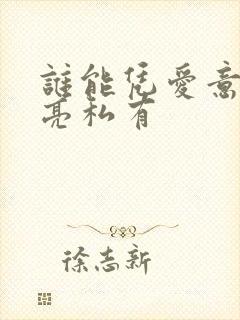 誰能凭愛意
亮私有
徐志新